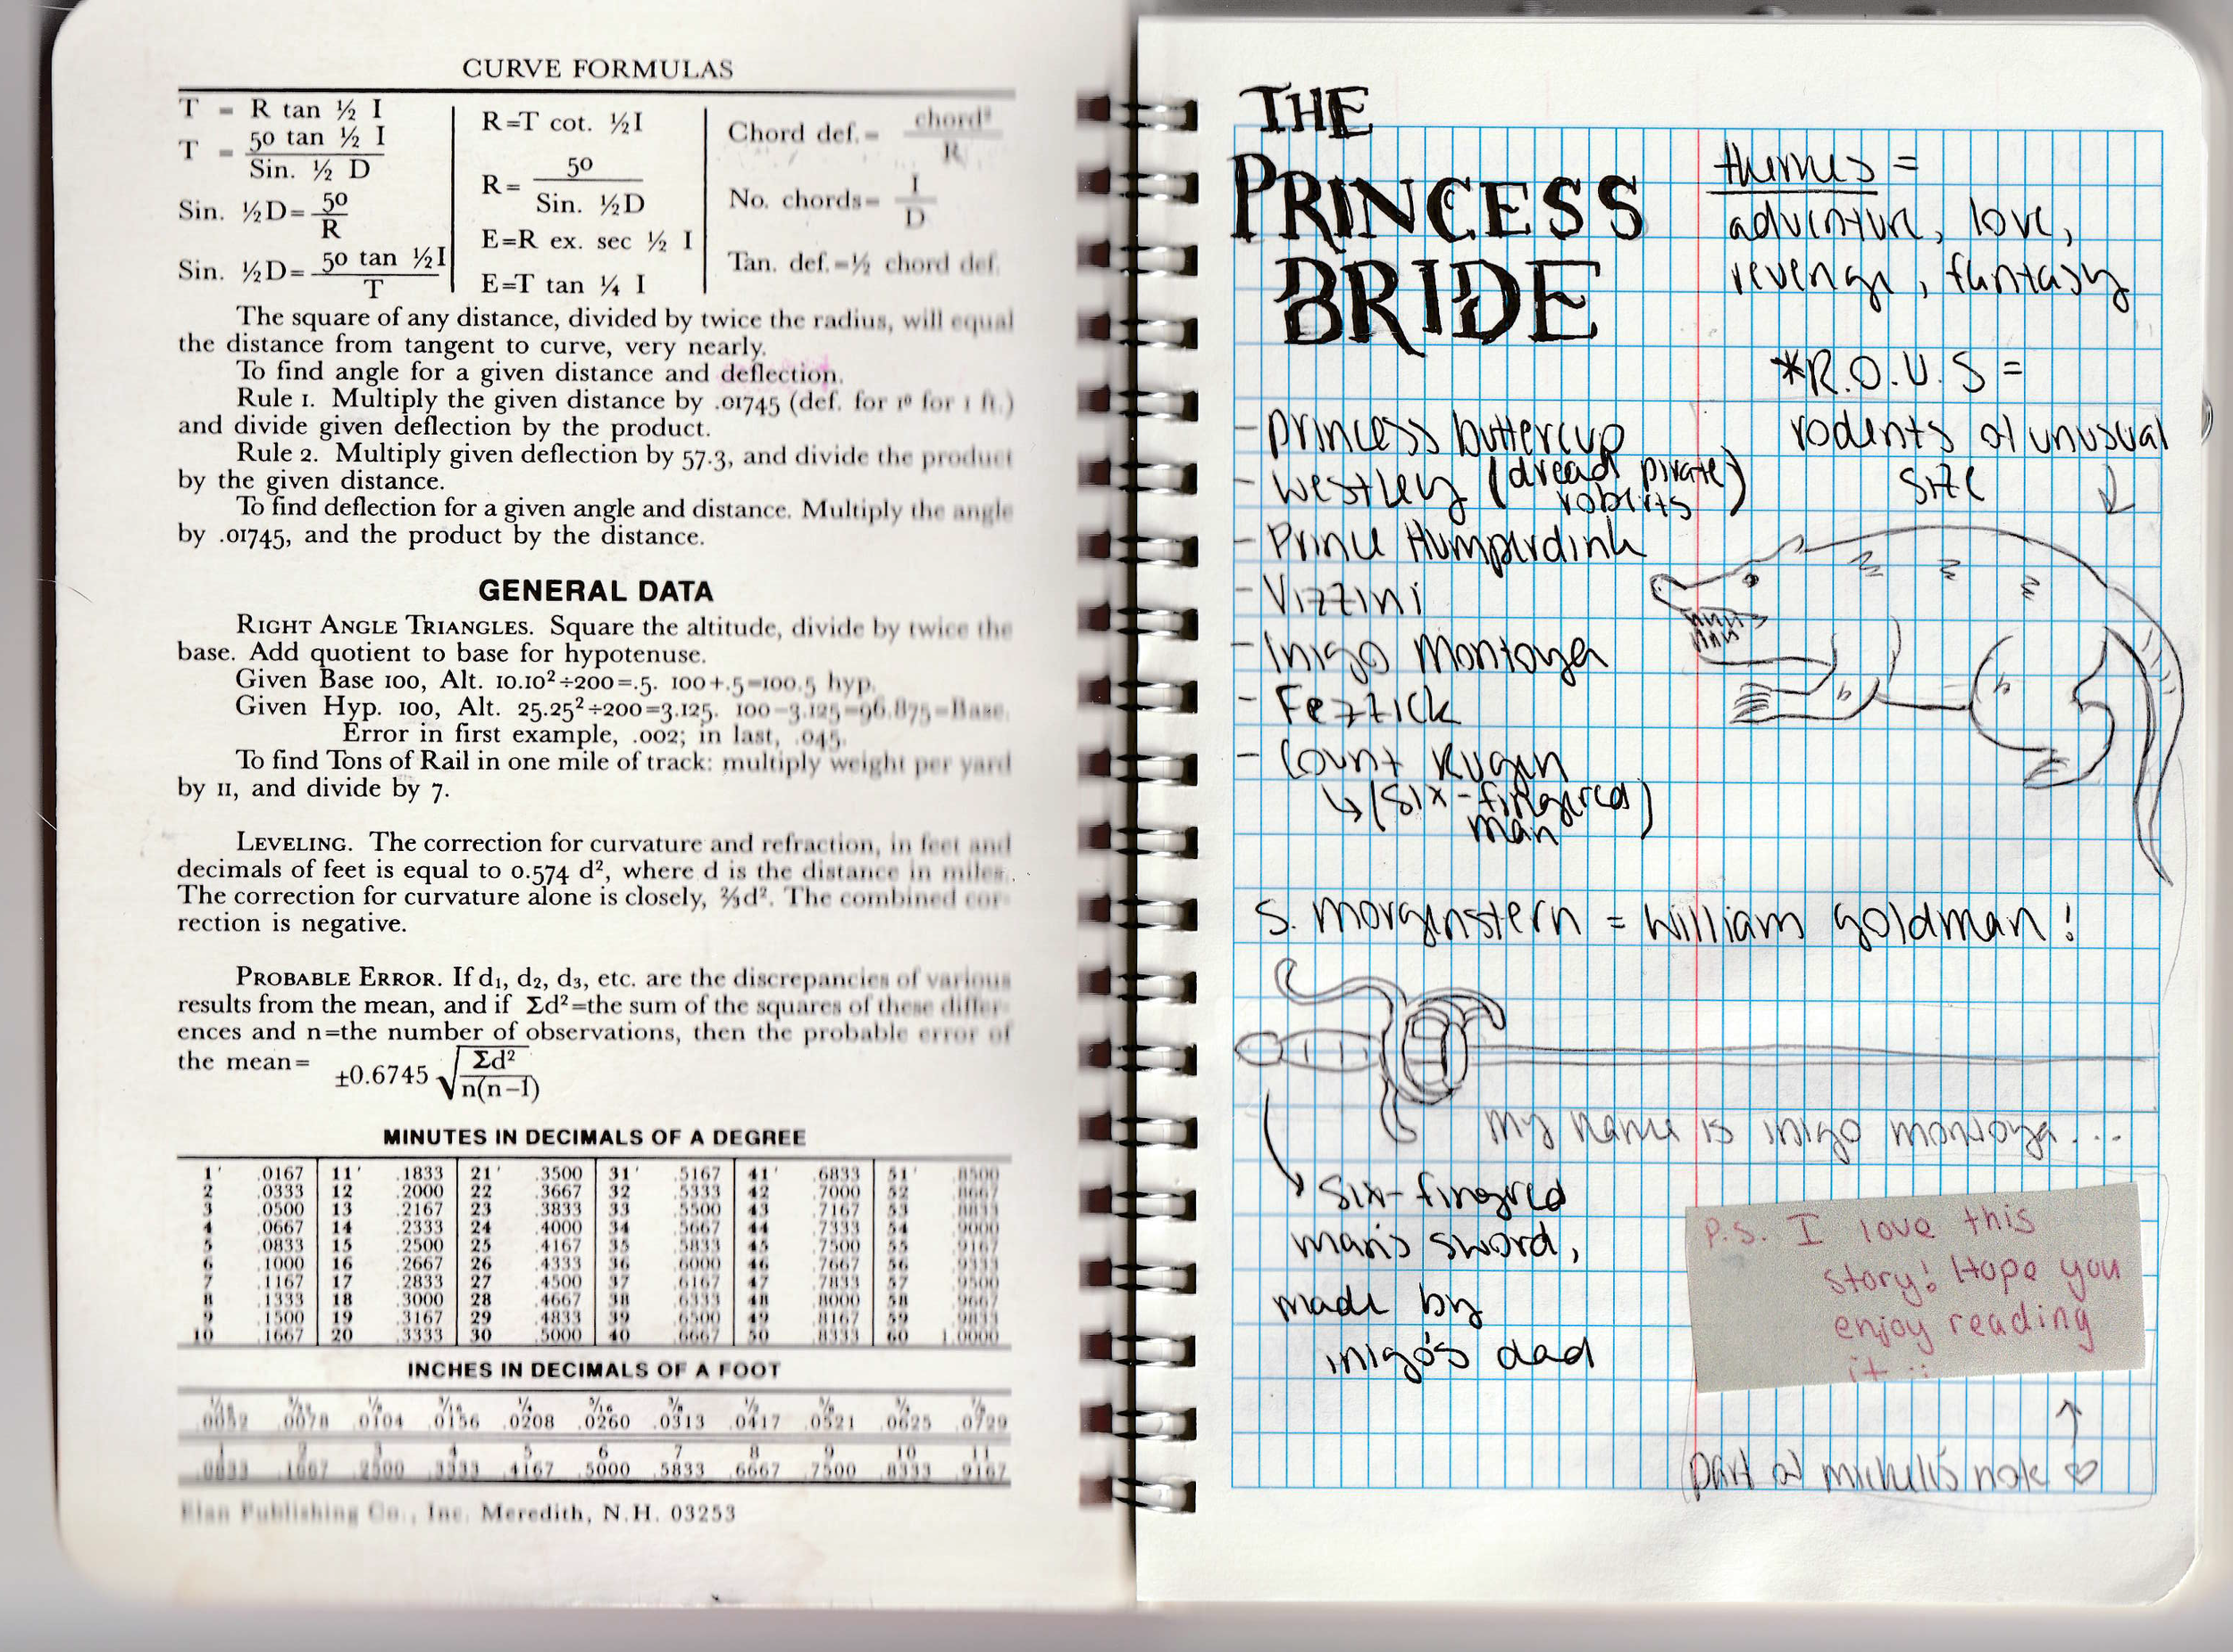 CURVE FORMULAS
T = R tan ½ I
T = 50 tan ½ I / Sin. ½ D
Sin. ½D= 50 / R
Sin. ½D= 50 tan ½I / T
R=T cot. ½I
R= 50 / Sin. ½D
E=R ex. sec ½ I
E=T tan ¼ I
Chord def.= chord² / R
No. chords= I / D
Tan. def.=½ chord def.
The square of any distance, divided by twice the radius, will equal
the distance from tangent to curve, very nearly.
To find angle for a given distance and deflection.
Rule 1. Multiply the given distance by .01745 (def. for 1° for 1 ft.)
and divide given deflection by the product.
Rule 2. Multiply given deflection by 57.3, and divide the product
by the given distance.
To find deflection for a given angle and distance. Multiply the angle
by .01745, and the product by the distance.
GENERAL DATA
RIGHT ANGLE TRIANGLES. Square the altitude, divide by twice the
base. Add quotient to base for hypotenuse.
Given Base 100, Alt. 10.10²÷200=.5. 100+.5=100.5 hyp.
Given Hyp. 100, Alt. 25.25²÷200=3.125. 100-3.125=96.875=Base.
Error in first example, .002; in last, .045.
To find Tons of Rail in one mile of track: multiply weight per yard
by 11, and divide by 7.
LEVELING. The correction for curvature and refraction, in feet and
decimals of feet is equal to 0.574 d², where d is the distance in miles.
The correction for curvature alone is closely, ⅔d². The combined cor-
rection is negative.
PROBABLE ERROR. If d₁, d₂, d₃, etc. are the discrepancies of various
results from the mean, and if Σd²=the sum of the squares of these differ-
ences and n=the number of observations, then the probable error of
the mean= ±0.6745 √Σd² / n(n-1)
MINUTES IN DECIMALS OF A DEGREE
1' .0167 11' .1833 21' .3500 31' .5167 41' .6833 51' .8500
2 .0333 12 .2000 22 .3667 32 .5333 42 .7000 52 .8667
3 .0500 13 .2167 23 .3833 33 .5500 43 .7167 53 .8833
4 .0667 14 .2333 24 .4000 34 .5667 44 .7333 54 .9000
5 .0833 15 .2500 25 .4167 35 .5833 45 .7500 55 .9167
6 .1000 16 .2667 26 .4333 36 .6000 46 .7667 56 .9333
7 .1167 17 .2833 27 .4500 37 .6167 47 .7833 57 .9500
8 .1333 18 .3000 28 .4667 38 .6333 48 .8000 58 .9667
9 .1500 19 .3167 29 .4833 39 .6500 49 .8167 59 .9833
10 .1667 20 .3333 30 .5000 40 .6667 50 .8333 60 1.0000
INCHES IN DECIMALS OF A FOOT
.0052 .0078 .0104 .0156 .0208 .0260 .0313 .0417 .0521 .0625 .0729
1 2 3 4 5 6 7 8 9 10 11
.0833 .1667 .2500 .3333 .4167 .5000 .5833 .6667 .7500 .8333 .9167
Elan Publishing Co., Inc. Meredith, N.H. 03253
THE
PRINCESS
BRIDE
themes =
adventure, love,
revenge, fantasy
*R.O.U.S =
rodents of unusual
size
- princess buttercup
- westley (dread pirate
roberts)
- Prince Humperdink
- Vizzini
- Inigo Montoya
- Fezzick
- Count Rugen
↳ (six-fingered
man)
S. morgenstern = william goldman!
my name is inigo montoya...
six-fingred
man's sword,
made by
inigo's dad
P.S. I love this
story! Hope you
enjoy reading
it :
part of michelle's note ♡